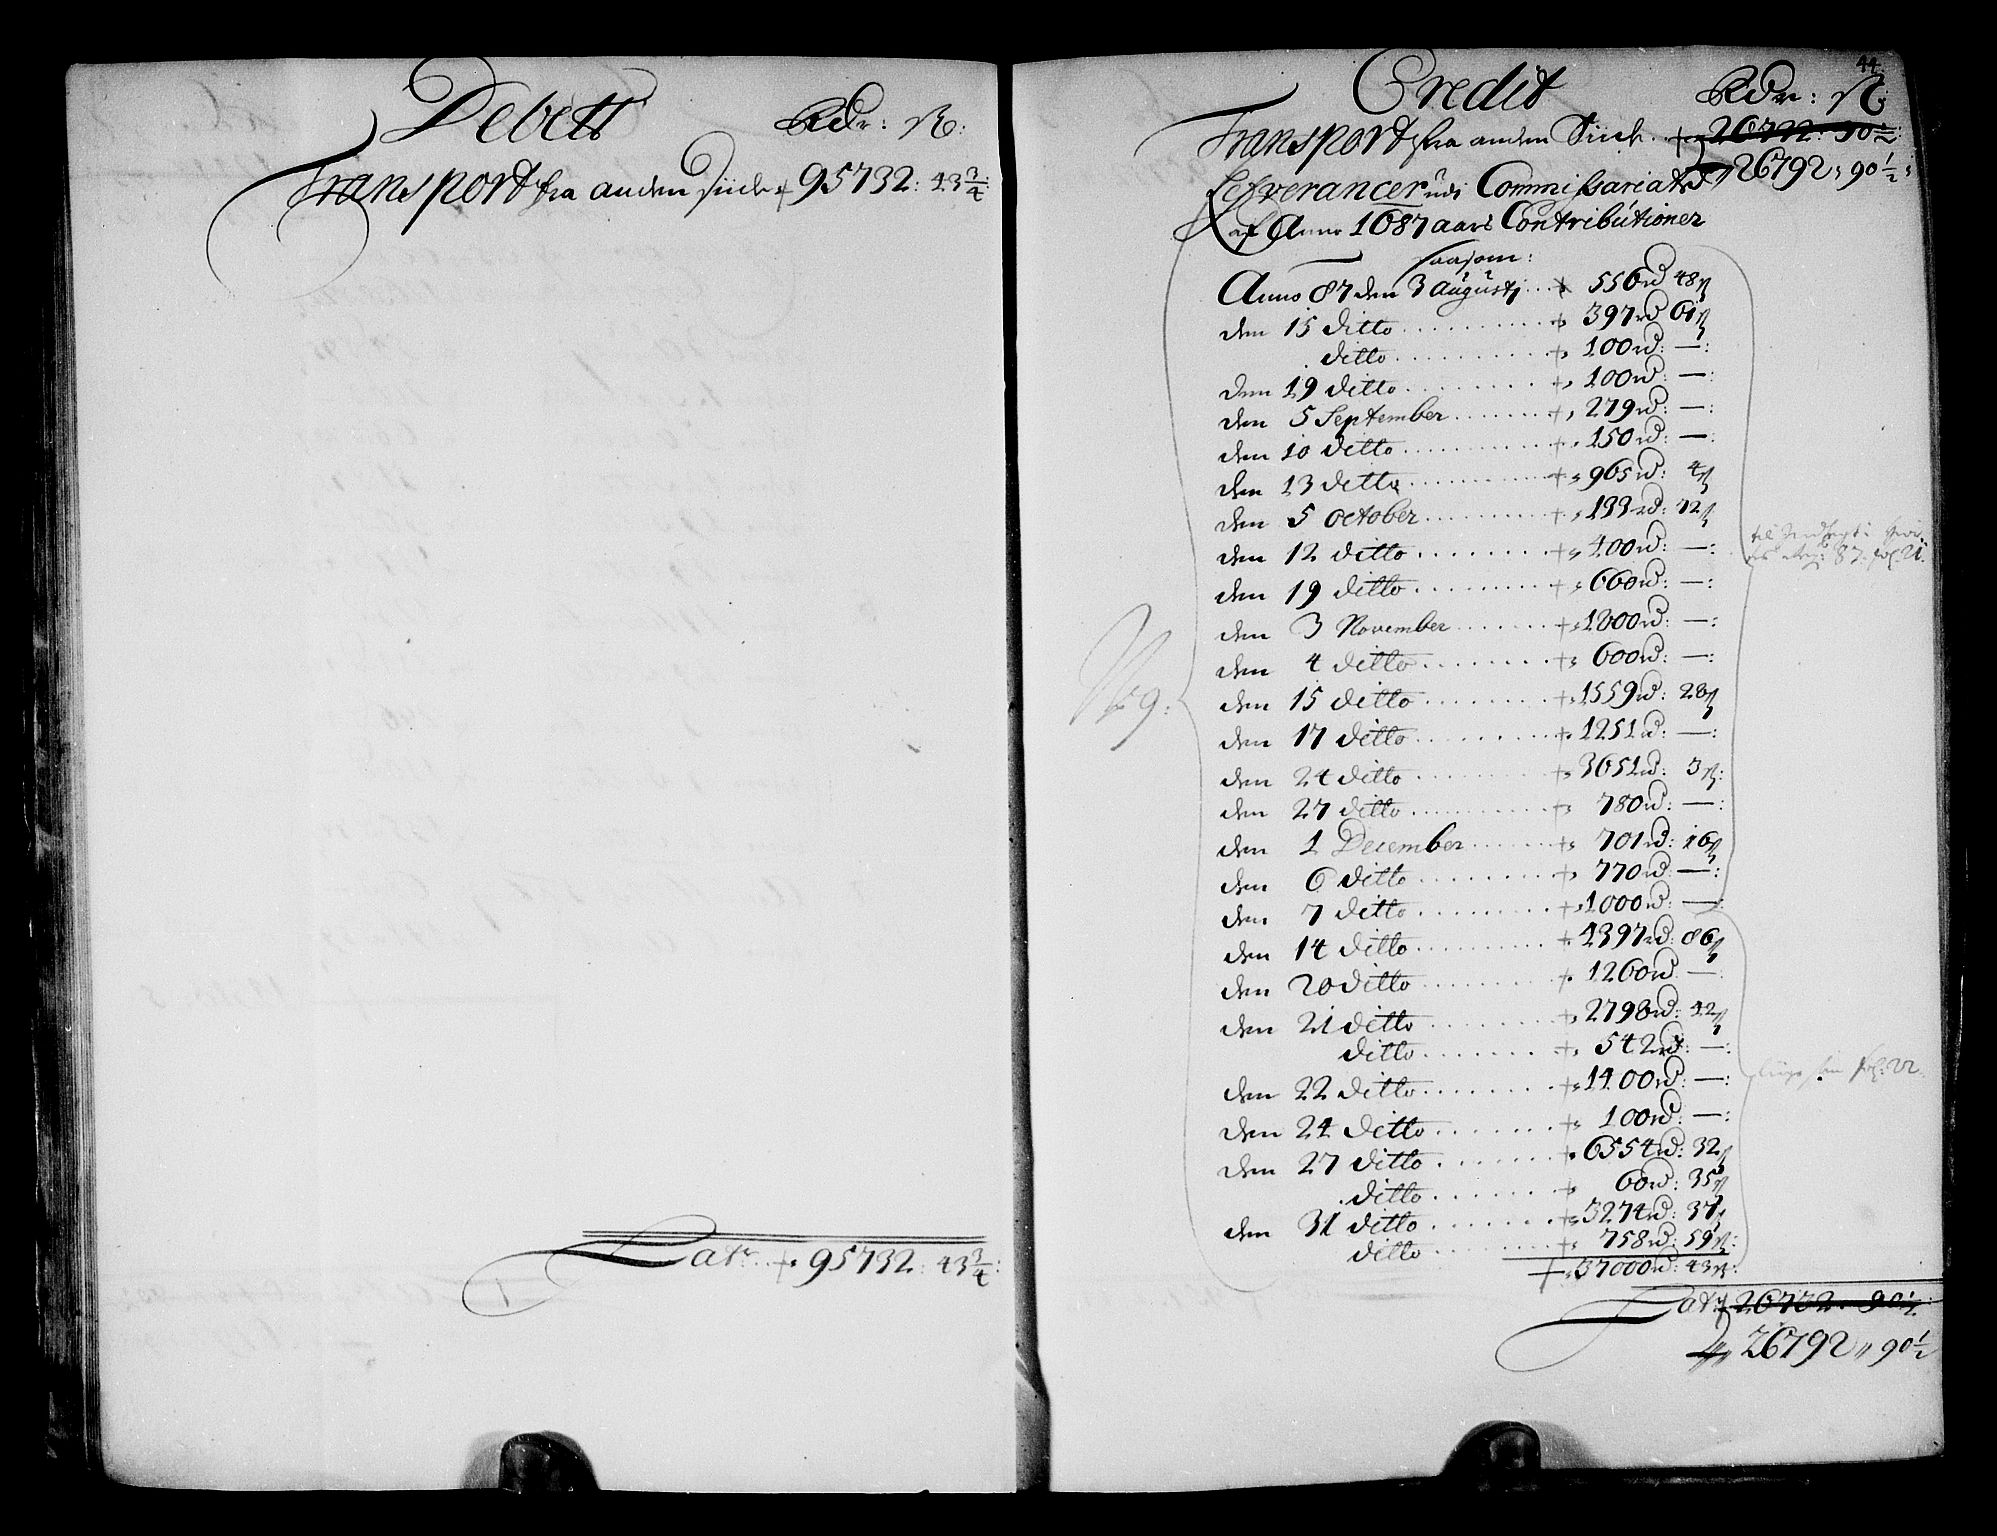 Debett Rdr: ß:
Transport fra anden siide + 95732: 43 3/4
Latr. + 95732: 43 3/4:
44
Credit Rdr: ß:
Transport fra anden Siide + 26732: 90 1/2:
26792: 90 1/2:
Lefverancer udi Commissariatet
af Anno 1687 aars Contributioner
saasom:
Anno 87 den 3 augusti + 556rd 48ß
den 15 ditto + 397rd 61ß
ditto + 100rd: —:
den 19 ditto + 100rd: —:
den 5 September + 279rd: —:
den 10 ditto + 150rd: —:
den 13 ditto + 965rd: 4ß
den 5 october + 133rd: 72ß
den 12 ditto + 400rd: —:
den 19 ditto + 660rd: —:
den 3 November + 1800rd: —:
den 4 ditto + 600rd: —:
No 9:
den 15 ditto + 1559rd: 28ß
den 17 ditto + 1251rd: —:
den 24 ditto + 3651rd: 3ß:
den 27 ditto + 780rd: —:
den 1 December + 701rd: 16ß
den 6 ditto + 770rd: —:
den 7 ditto + 1000rd: —:
den 14 ditto + 4397rd: 86ß
den 20 ditto + 1260rd: —:
den 21 ditto + 2798rd: 42ß
ditto + 542rd: —:
den 22 ditto + 1400rd: —:
den 24 ditto + 100rd: —:
den 27 ditto + 6554rd: 32ß
ditto + 60rd: 35ß
den 31 ditto + 3274rd: 37ß
ditto + 758rd: 59ß:
+ 37000rd: 43ß:
til
87. fol: 21.
fol: 22.
Latr 26732: 90 1/2
26792 90 1/2